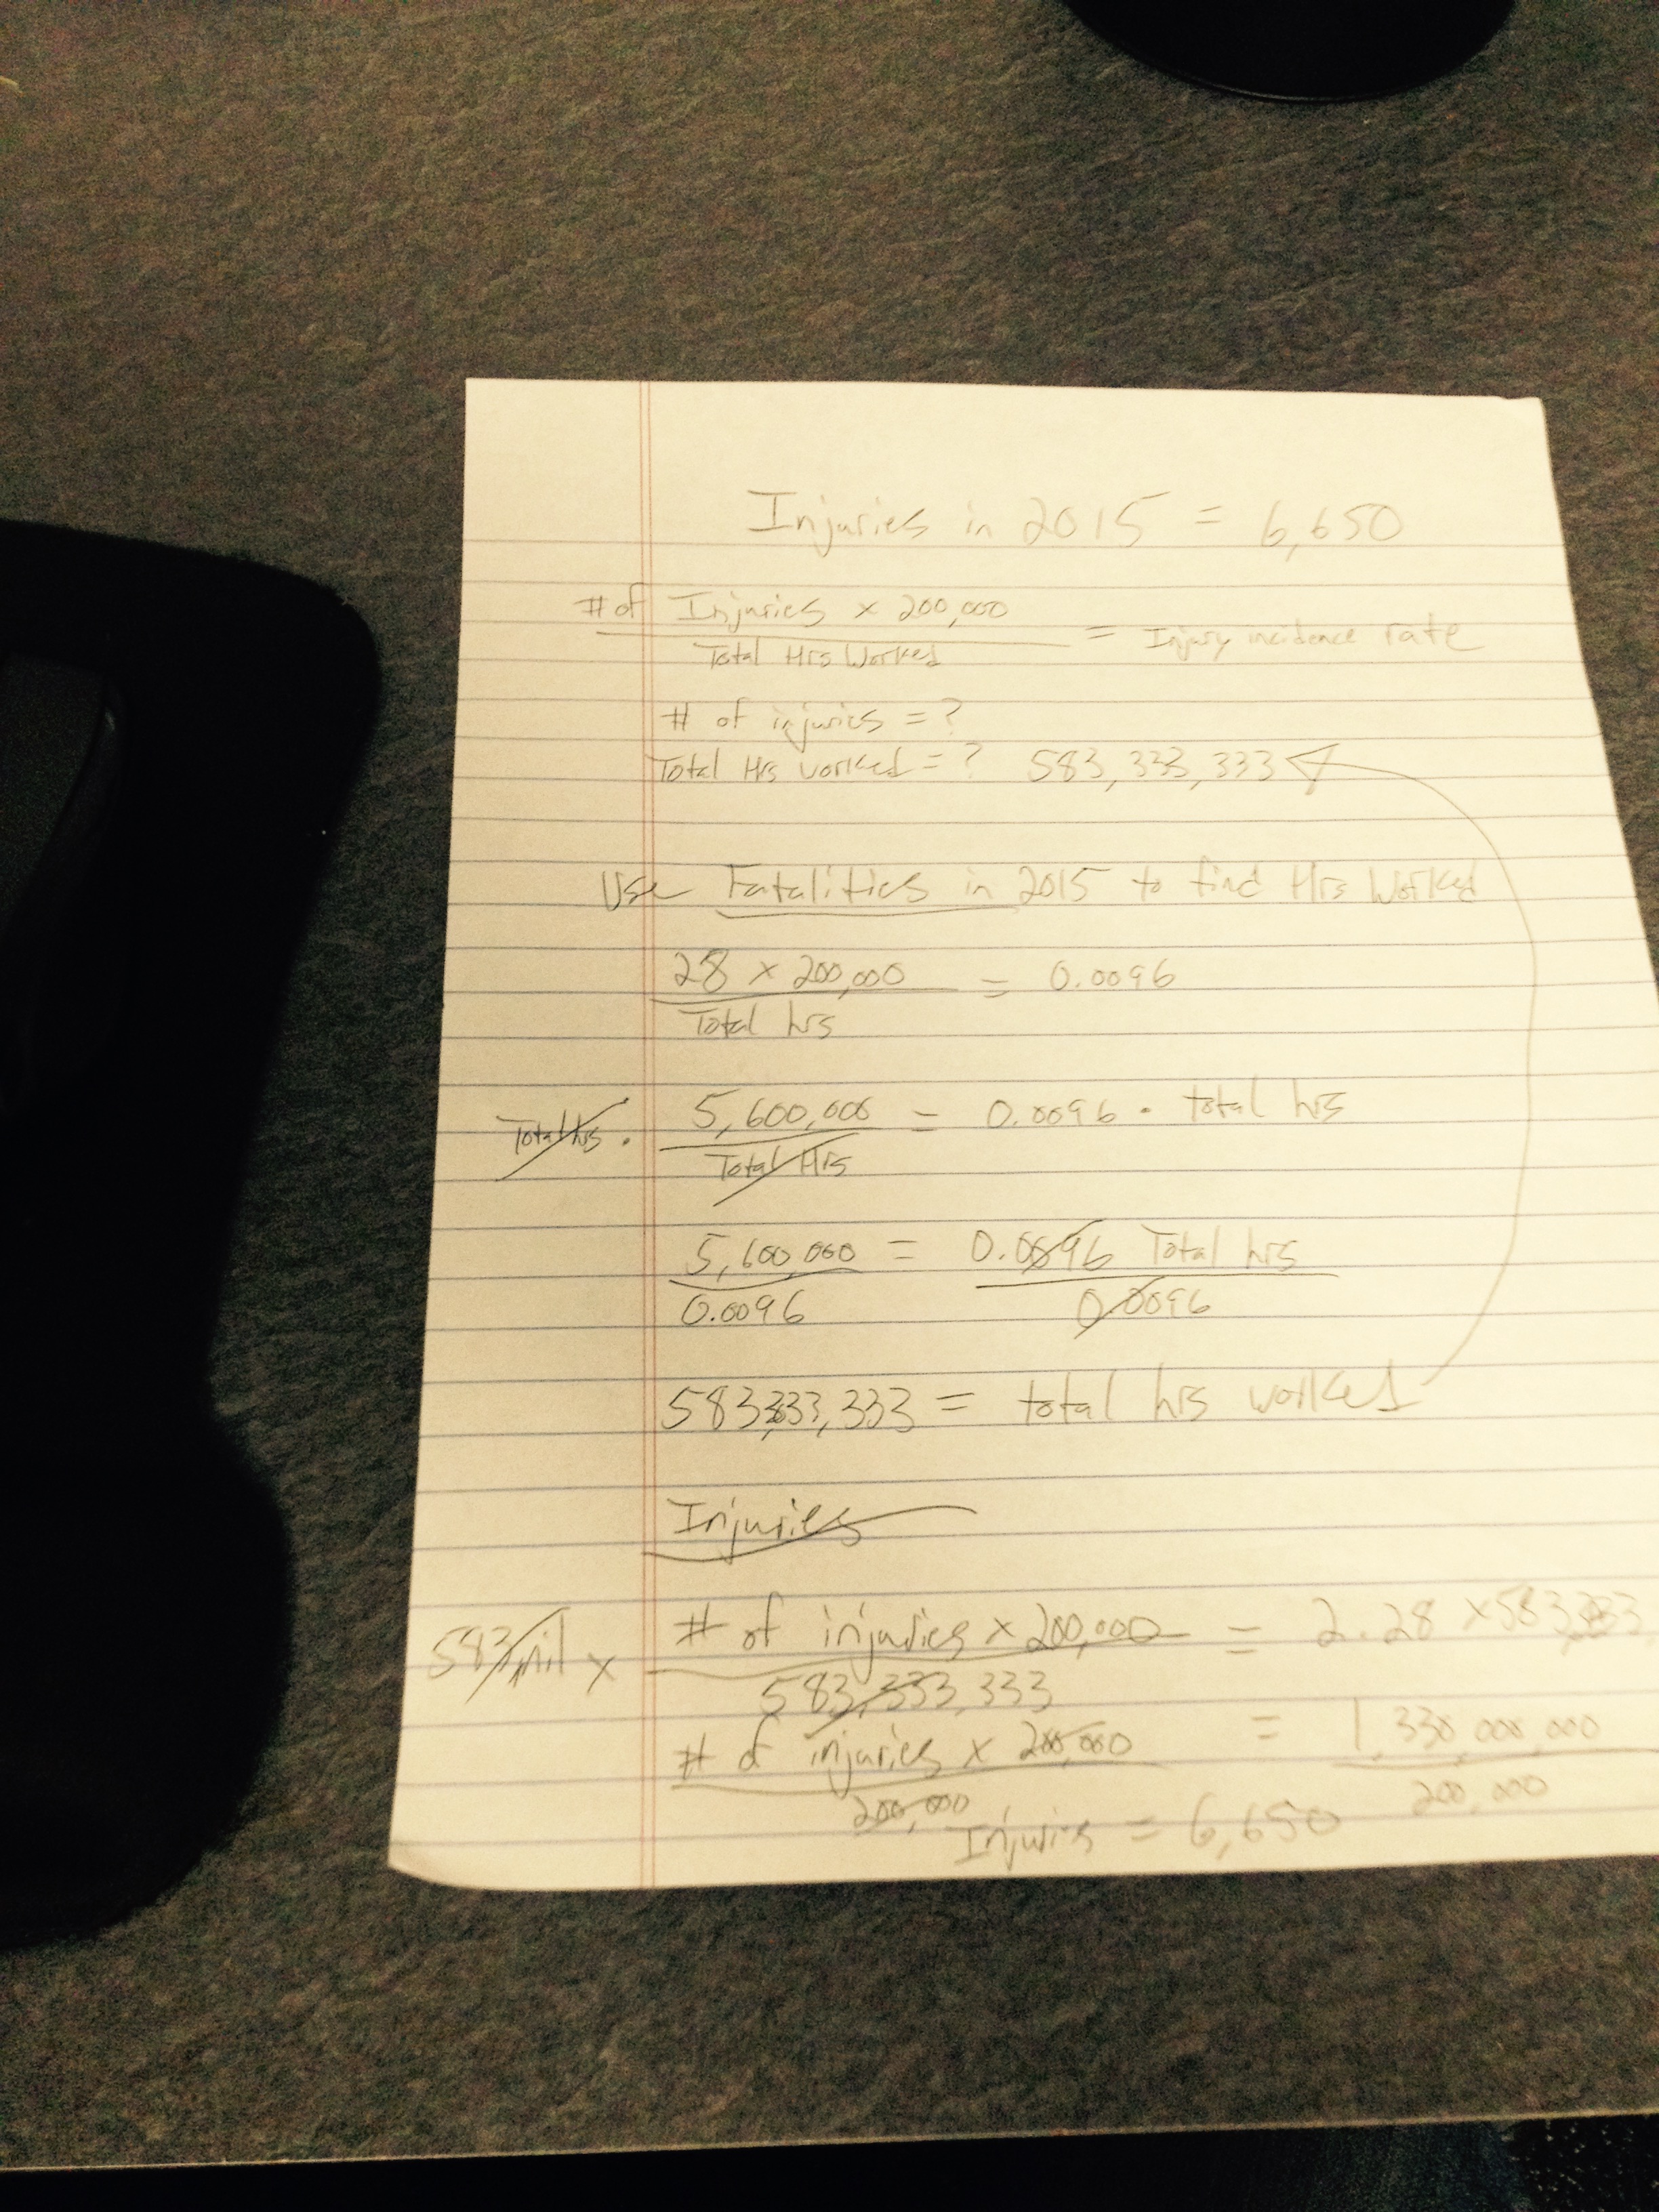 Injuries in 2015 = 6,650
# of Injuries x 200,000
Total Hrs Worked
= Injury incidence rate
# of injuries = ?
Total Hrs worked = ? 583,333,333
Use Fatalities in 2015 to find Hrs Worked
28 x 200,000 = 0.0096
Total hrs
Total hrs · 5,600,000 = 0.0096 · Total hrs
Total Hrs
5,600,000 = 0.0096 Total hrs
0.0096 0.0096
583,333,333 = total hrs worked
Injuries
583 mil x # of injuries x 200,000 = 2.28 x 583,333
583,333,333
# of injuries x 200,000 = 1,330,000,000
200,000 200,000
Injuries = 6,650